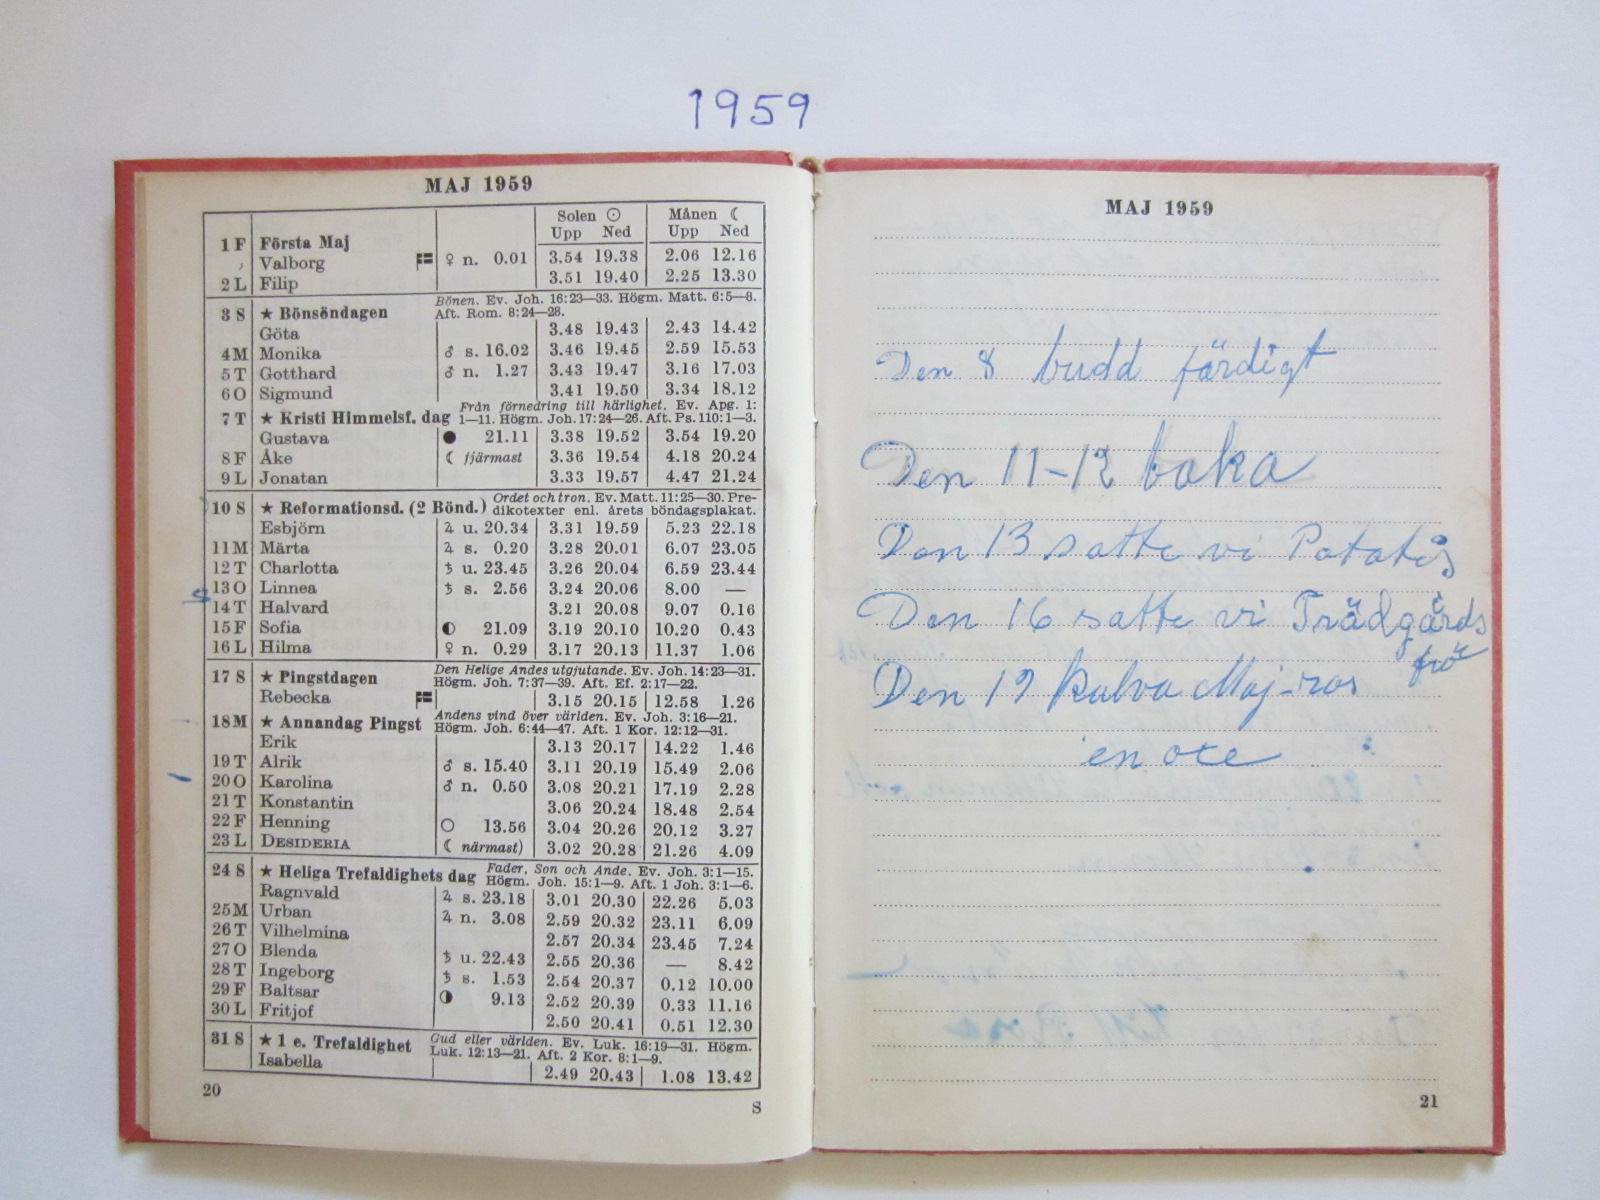 1959
MAJ 1959
Solen ☉ Månen ☾
Upp Ned Upp Ned
1 F Första Maj
Valborg ♀ n. 0.01 3.54 19.38 2.06 12.16
2 L Filip 3.51 19.40 2.25 13.30
3 S ★ Bönsöndagen Bönen. Ev. Joh. 16:23—33. Högm. Matt. 6:5—8.
Aft. Rom. 8:24—28.
Göta 3.48 19.43 2.43 14.42
4 M Monika ♂ s. 16.02 3.46 19.45 2.59 15.53
5 T Gotthard ♂ n. 1.27 3.43 19.47 3.16 17.03
6 O Sigmund 3.41 19.50 3.34 18.12
7 T ★ Kristi Himmelsf. dag Från förnedring till härlighet. Ev. Apg. 1:
1—11. Högm. Joh. 17:24—26. Aft. Ps. 110:1—3.
Gustava ● 21.11 3.38 19.52 3.54 19.20
8 F Åke ☾ fjärmast 3.36 19.54 4.18 20.24
9 L Jonatan 3.33 19.57 4.47 21.24
10 S ★ Reformationsd. (2 Bönd.) Ordet och tron. Ev. Matt. 11:25—30. Pre-
dikotexter enl. årets böndagsplakat.
Esbjörn ♃ u. 20.34 3.31 19.59 5.23 22.18
11 M Märta ♃ s. 0.20 3.28 20.01 6.07 23.05
12 T Charlotta ♄ u. 23.45 3.26 20.04 6.59 23.44
13 O Linnea ♄ s. 2.56 3.24 20.06 8.00 —
s 14 T Halvard 3.21 20.08 9.07 0.16
15 F Sofia ◐ 21.09 3.19 20.10 10.20 0.43
16 L Hilma ♀ n. 0.29 3.17 20.13 11.37 1.06
17 S ★ Pingstdagen Den Helige Andes utgjutande. Ev. Joh. 14:23—31.
Högm. Joh. 7:37—39. Aft. Ef. 2:17—22.
Rebecka 3.15 20.15 12.58 1.26
18 M ★ Annandag Pingst Andens vind över världen. Ev. Joh. 3:16—21.
Högm. Joh. 6:44—47. Aft. 1 Kor. 12:12—31.
Erik 3.13 20.17 14.22 1.46
19 T Alrik ♂ s. 15.40 3.11 20.19 15.49 2.06
20 O Karolina ♂ n. 0.50 3.08 20.21 17.19 2.28
21 T Konstantin 3.06 20.24 18.48 2.54
22 F Henning ○ 13.56 3.04 20.26 20.12 3.27
23 L DESIDERIA ☾ närmast) 3.02 20.28 21.26 4.09
24 S ★ Heliga Trefaldighets dag Fader, Son och Ande. Ev. Joh. 3:1—15.
Högm. Joh. 15:1—9. Aft. 1 Joh. 3:1—6.
Ragnvald ♃ s. 23.18 3.01 20.30 22.26 5.03
25 M Urban ♃ n. 3.08 2.59 20.32 23.11 6.09
26 T Vilhelmina 2.57 20.34 23.45 7.24
27 O Blenda ♄ u. 22.43 2.55 20.36 — 8.42
28 T Ingeborg ♄ s. 1.53 2.54 20.37 0.12 10.00
29 F Baltsar ◑ 9.13 2.52 20.39 0.33 11.16
30 L Fritjof 2.50 20.41 0.51 12.30
31 S ★ 1 e. Trefaldighet Gud eller världen. Ev. Luk. 16:19—31. Högm.
Luk. 12:13—21. Aft. 2 Kor. 8:1—9.
Isabella 2.49 20.43 1.08 13.42
20
S
MAJ 1959
Den 8 budd färdigt
Den 11-12 baka
Den 13 satte vi Potatis
Den 16 satte vi Trädgårds
frö
Den 19 kalva Maj-ros
en oxe
21